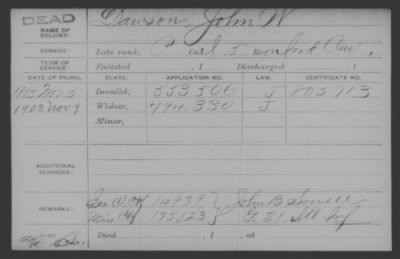 DEAD
NAME OF SOLDIER: Dawson, John W
SERVICE: Late rank,
TERM OF SERVICE: Enlisted , 1 Discharged , 1
DATE OF FILING. CLASS. APPLICATION NO. LAW. CERTIFICATE NO.
Invalid, 553506 J 805713
1908 Nov 9 Widow, 794.330 J
Minor,
ADDITIONAL SERVICES:
REMARKS: 14939 John B
172123 G. 31 Ill Inf
Died , 1 , at